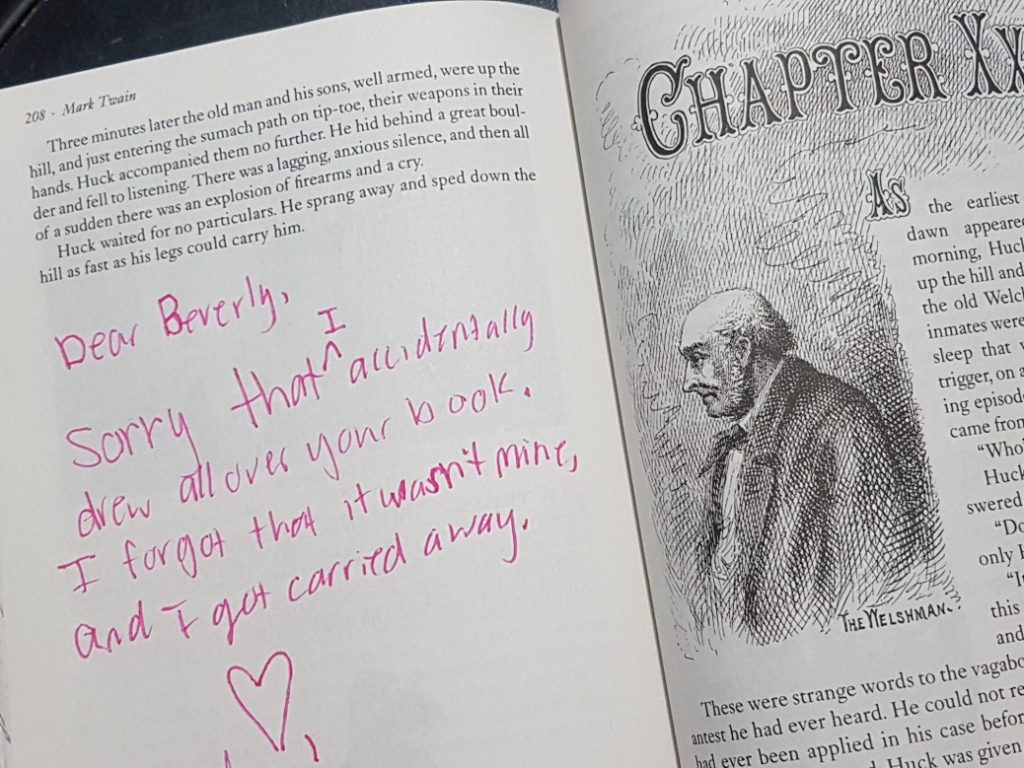 208 · Mark Twain
Three minutes later the old man and his sons, well armed, were up the
hill, and just entering the sumach path on tip-toe, their weapons in their
hands. Huck accompanied them no further. He hid behind a great boul-
der and fell to listening. There was a lagging, anxious silence, and then all
of a sudden there was an explosion of firearms and a cry.
Huck waited for no particulars. He sprang away and sped down the
hill as fast as his legs could carry him.
Dear Beverly,
Sorry that I accidentally
drew all over your book.
I forgot that it wasn't mine,
and I got carried away.
CHAPTER XX
As the earliest
dawn appeared
morning, Huck
up the hill and
the old Welch
inmates were
sleep that
trigger, on a
ing episod
came from
"Who
Huck
swered
"Do
only
this
and
THE WELSHMAN.
These were strange words to the vagabo
antest he had ever heard. He could not re
had ever been applied in his case befor
Huck was given